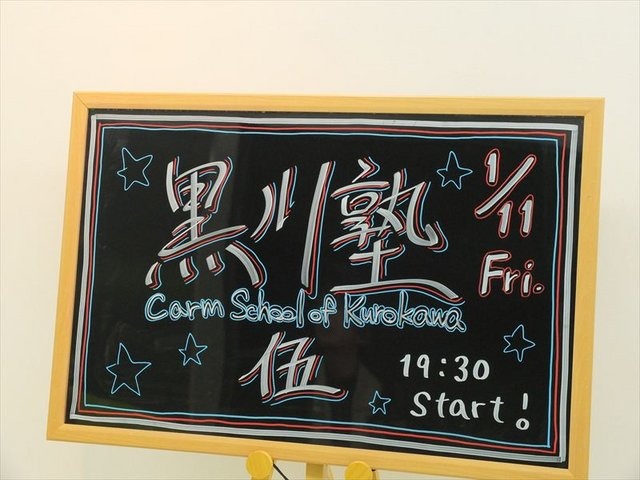 黒川塾
1/11
Fri.
Carm School of Kurokawa
伍
19:30
Start!